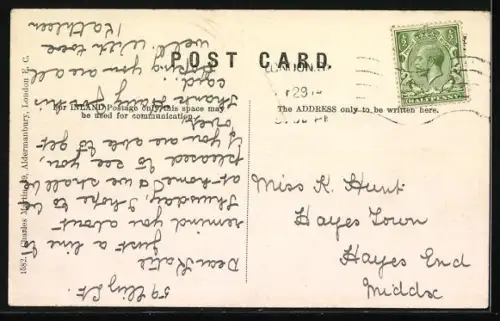 POST CARD.
For INLAND Postage only, this space may
be used for communication.
The ADDRESS only to be written here.
Charles Martin, 39, Aldermanbury, London E. C.
LONDON
HALFPENNY
Dear Katie
Just a line to
remind you about
Thursday, I hope to be
at-home & we shall be
pleased to see you,
if you are able to get
over.
Thank Harry for his
card.
Hoping you are all
well. With love
Kathleen
Miss K. Hunt
Hayes Town
Hayes End
Middx